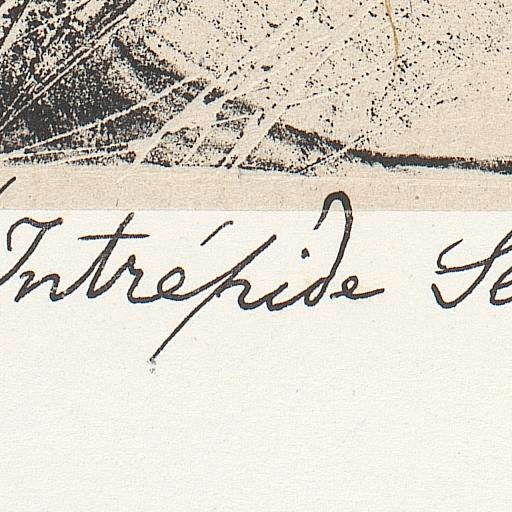 Intrépide Se